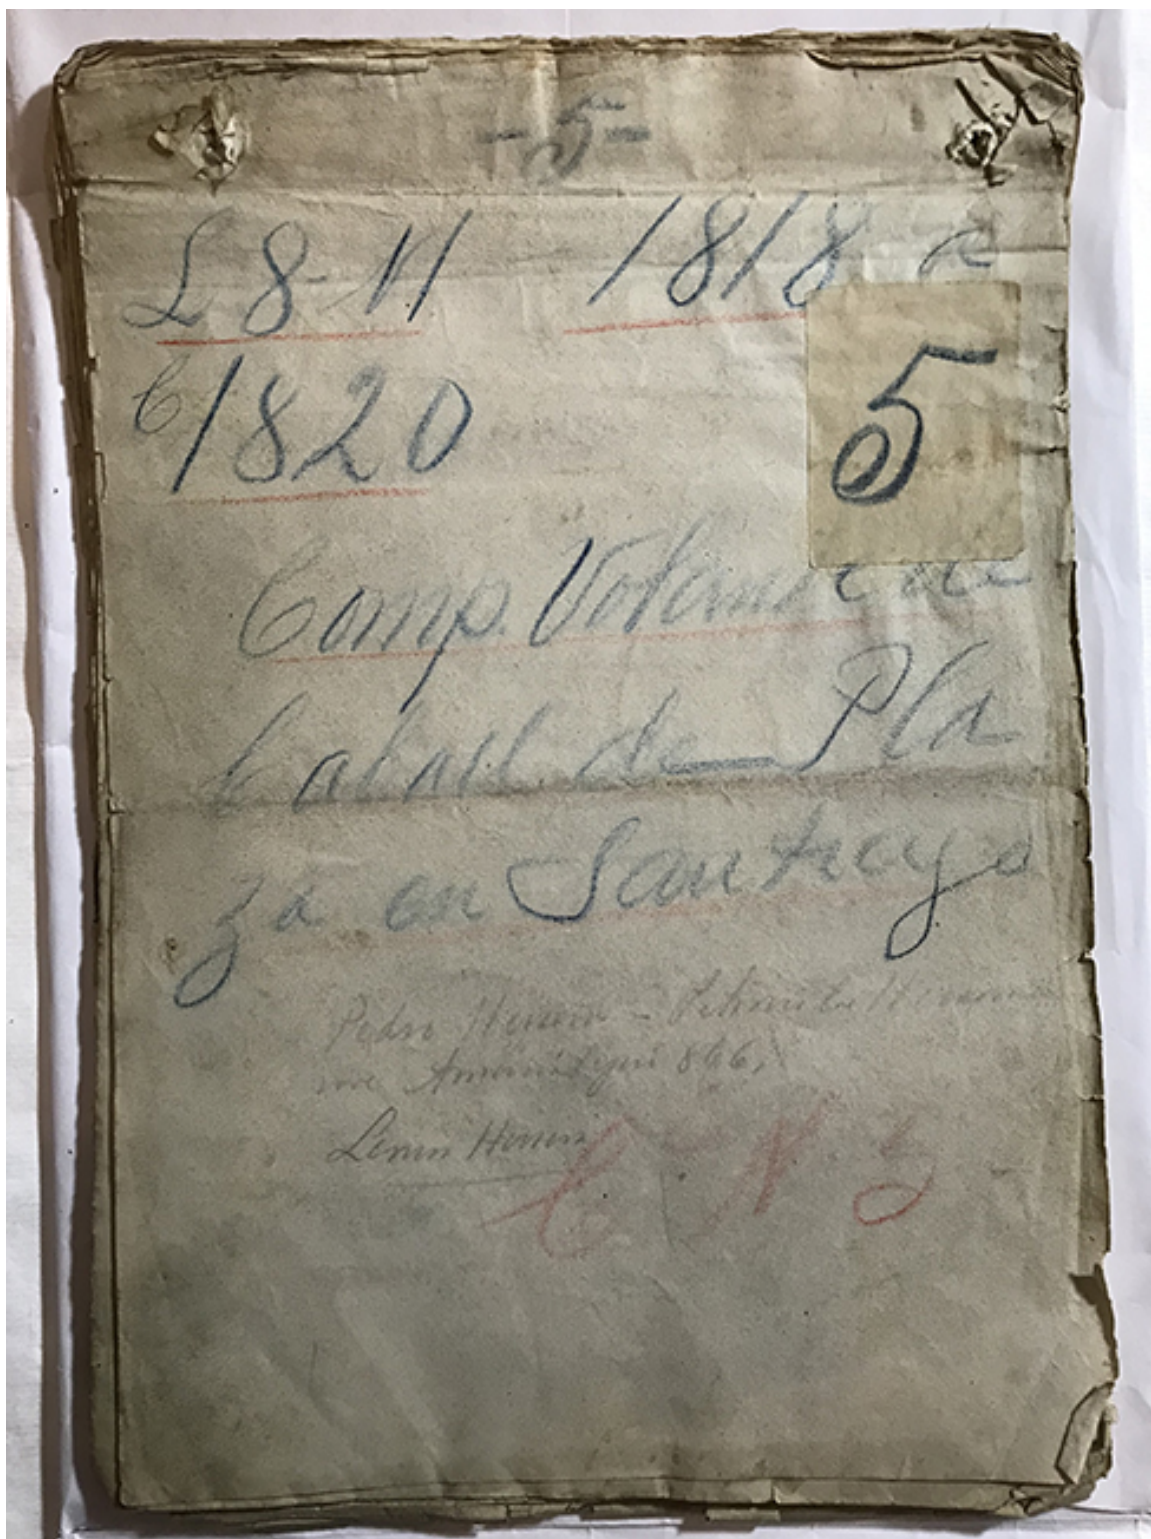 -5-
L 8-11 1818 a
C 1820
5
Comp. Volante de
Caball. de Pla
za en Santiago
Pedro Herrera -
866,
Lenin Herrera
C N